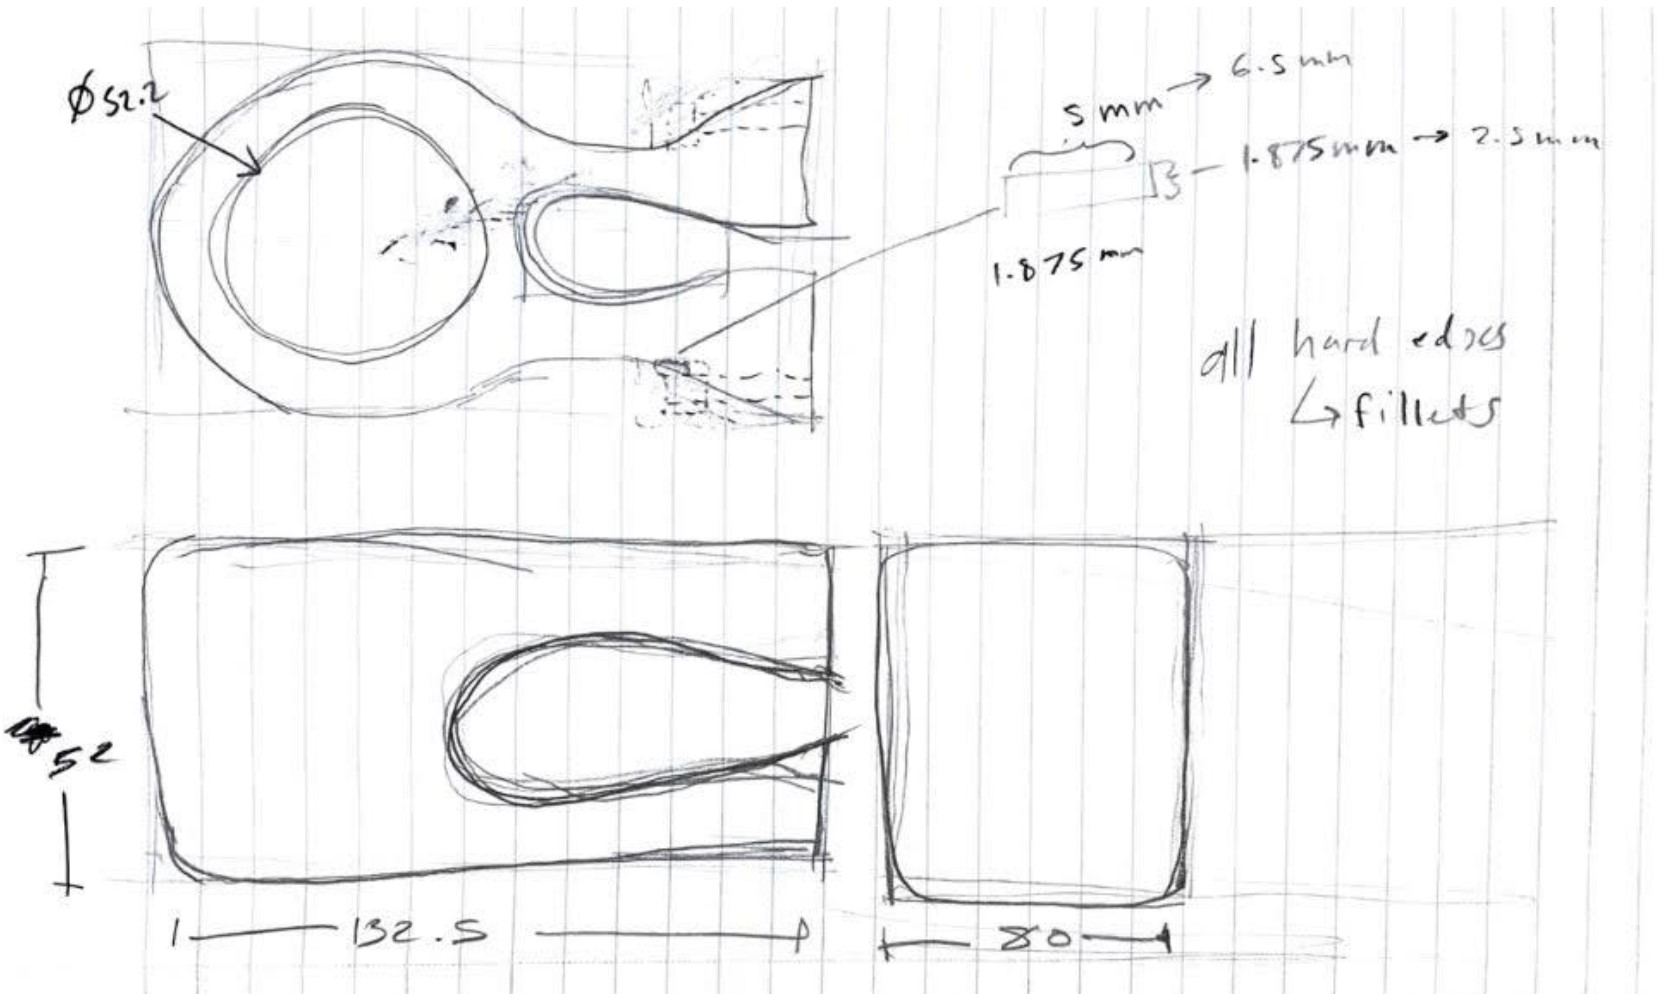 Ø 52.2
5 mm → 6.5 mm
1.875 mm → 2.5 mm
1.875 mm
all hard edges
↳ fillets
52
132.5
80